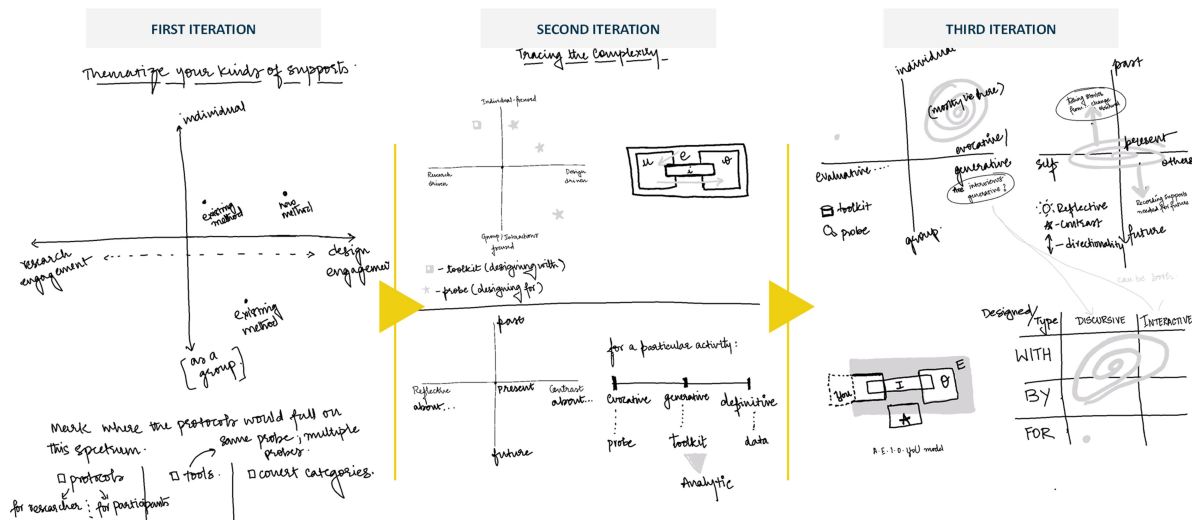 FIRST ITERATION
Thematize your kinds of supports.
individual
existing method
new method
research engagement
design engagemen
existing method
[as a group]
Mark where the protocols would fall on this spectrum.
same probe, multiple probes.
protocols
tools.
covert categories.
for researcher
for participants
SECOND ITERATION
Tracing the Complexity
Individual-focused
Research driven
Design driven
Group/Interactions focused
- toolkit (designing with)
- probe (designing for)
e
i
past
Reflective about...
present
Contrast about...
future
for a particular activity:
evocative
generative
definitive
probe
toolkit
data
Analytic
THIRD ITERATION
individual
(mostly we here)
evocative/
generative
evaluative....
are interviews generative?
toolkit
probe
group.
past
present
self
others
Recording supports needed for future
Reflective
- contrast
- directionality
future
can be both
Designed/Type
DISCURSIVE
INTERACTIVE
WITH
BY
FOR
You
I
E
A
A.E.I.O.YoU model